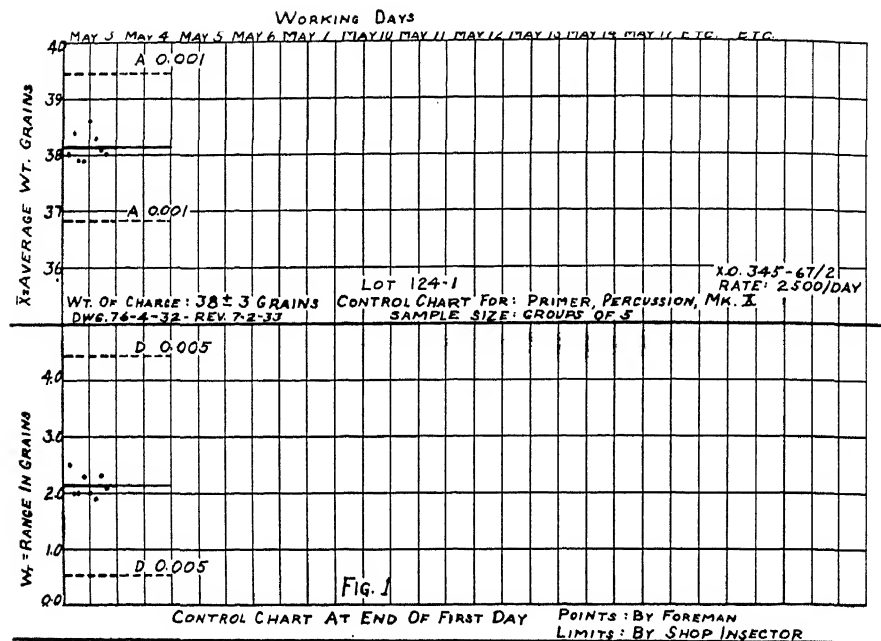 WORKING DAYS
MAY 3 MAY 4 MAY 5 MAY 6 MAY 7 MAY 10 MAY 11 MAY 12 MAY 13 MAY 14 MAY 17 ETC. ETC.
40
A 0.001
39
38
37
A 0.001
36
X̄=AVERAGE WT. GRAINS
LOT 124-1
X.O. 345-67/2
RATE: 2500/DAY
WT. OF CHARGE: 38 ± 3 GRAINS
CONTROL CHART FOR: PRIMER, PERCUSSION, MK. X
DWG. 76-4-32-REV. 7-2-33
SAMPLE SIZE: GROUPS OF 5
D 0.005
4.0
3.0
2.0
1.0
D 0.005
0.0
= RANGE IN GRAINS
FIG. 1
CONTROL CHART AT END OF FIRST DAY
POINTS: BY FOREMAN
LIMITS: BY SHOP INSECTOR